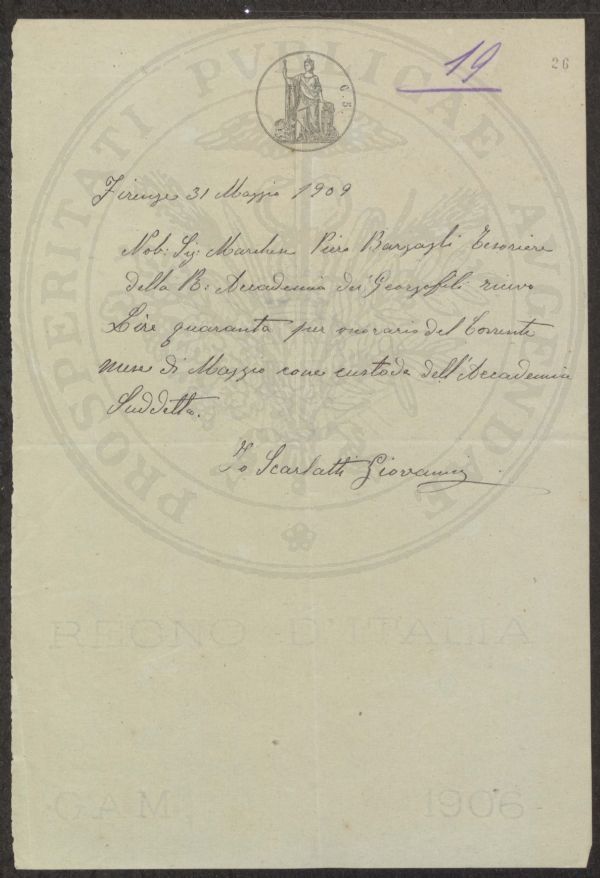 19
26
C. 5.
Firenze 31 Maggio 1909
Nob: Sig: Marchese Piero Bargagli Tesoriere
della R: Accademia dei Georgofili ricevo
Lire quaranta per onorario del Corrente
mese di Maggio come custode dell'Accademia
Suddetta.
Io Scarlatti Giovanni
PROSPERITATI PVBLICAE AVGENDAE
REGNO D'ITALIA
1906